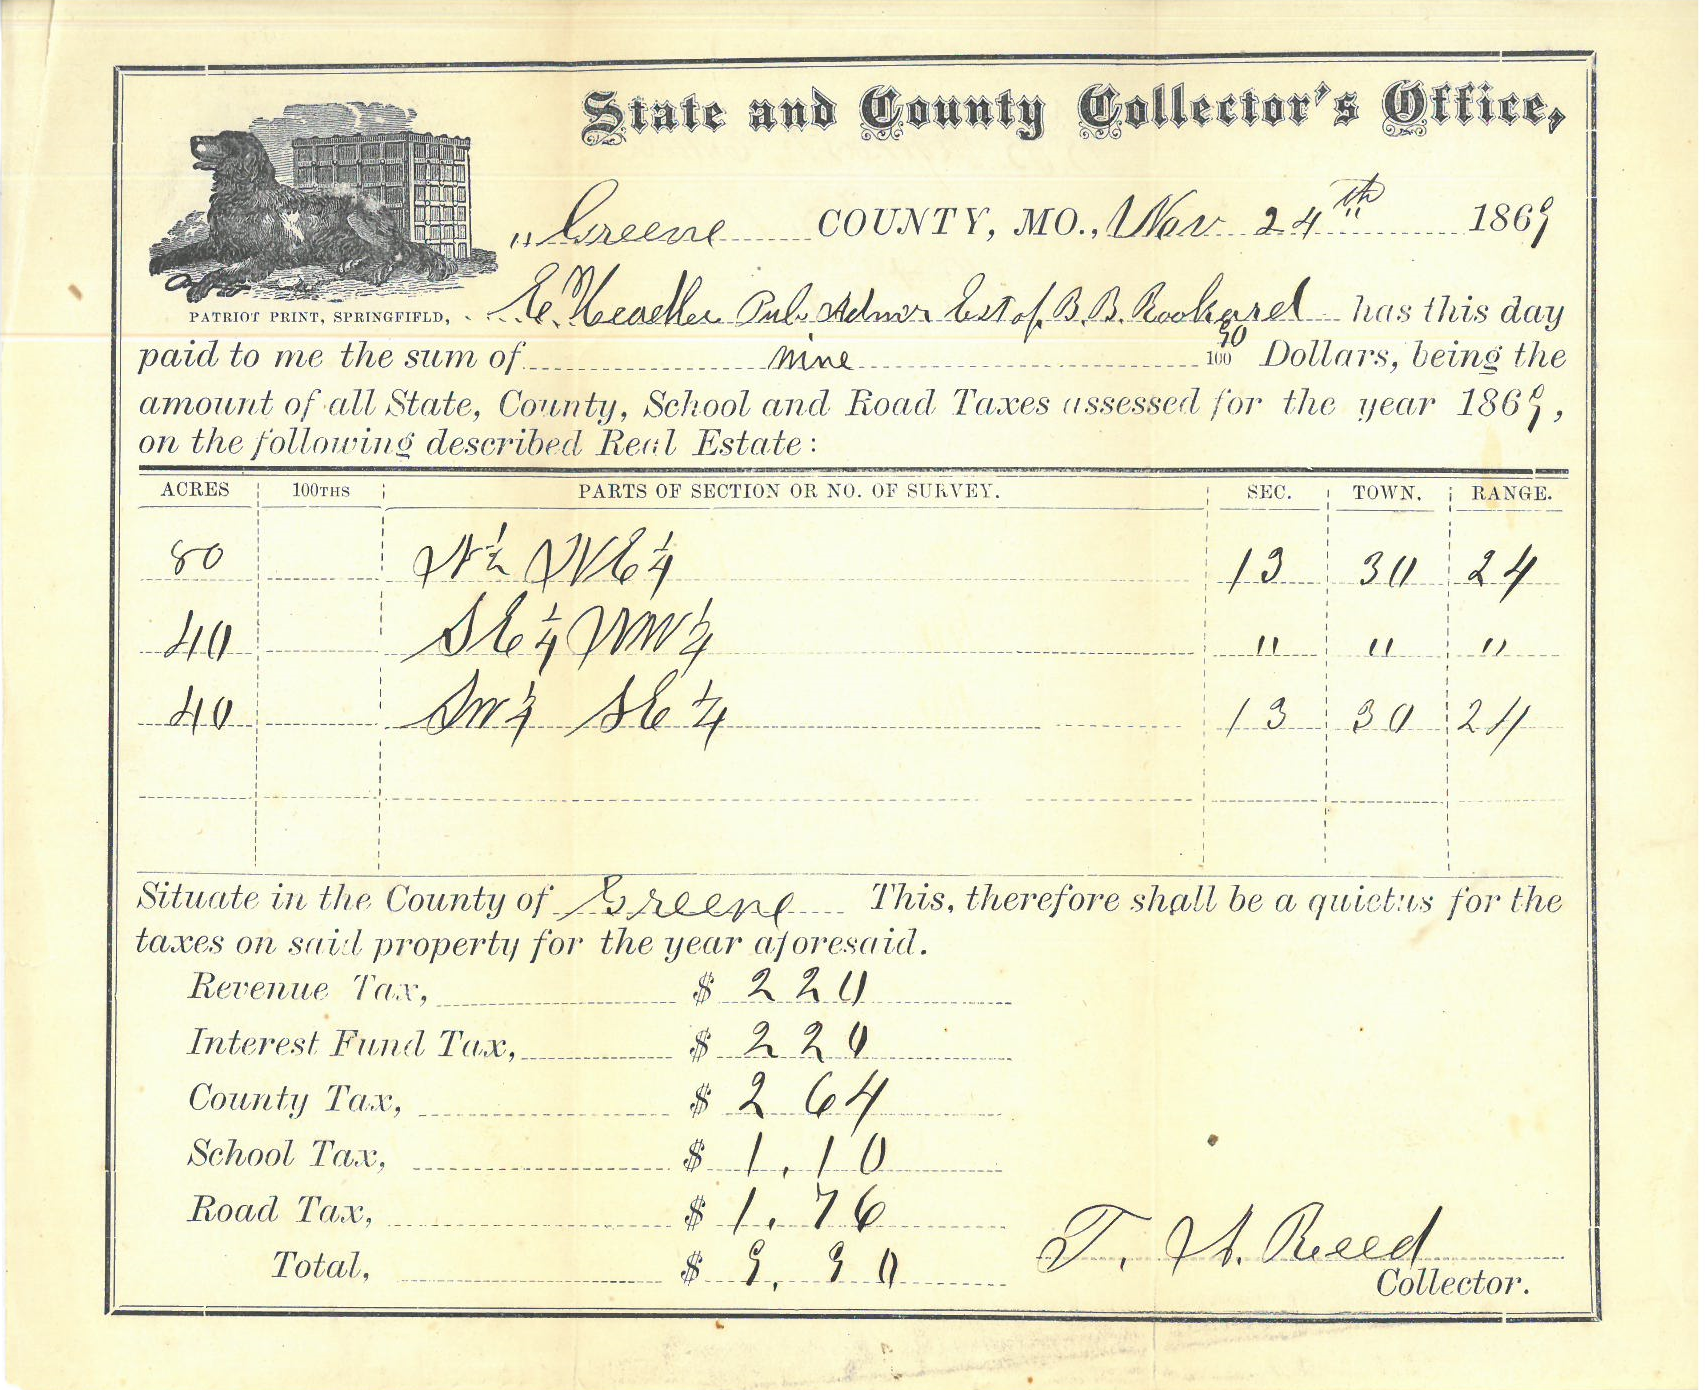 State and County Collector's Office,
" Greene COUNTY, MO., Nov 24th 1869
PATRIOT PRINT, SPRINGFIELD,
E. Headlee Pub Admr Est of B. B. Rookard has this day
paid to me the sum of nine 90/100 Dollars, being the
amount of all State, County, School and Road Taxes assessed for the year 1869,
on the following described Real Estate:
ACRES 100THS PARTS OF SECTION OR NO. OF SURVEY. SEC. TOWN. RANGE.
80 N 1/2 NE 1/4 13 30 24
40 SE 1/4 NW 1/4 " " "
40 SW 1/4 SE 1/4 13 30 24
Situate in the County of Greene This, therefore shall be a quietus for the
taxes on said property for the year aforesaid.
Revenue Tax, $ 2 20
Interest Fund Tax, $ 2 20
County Tax, $ 2 64
School Tax, $ 1.10
Road Tax, $ 1.76
Total, $ 9.90
T. A. Reed
Collector.